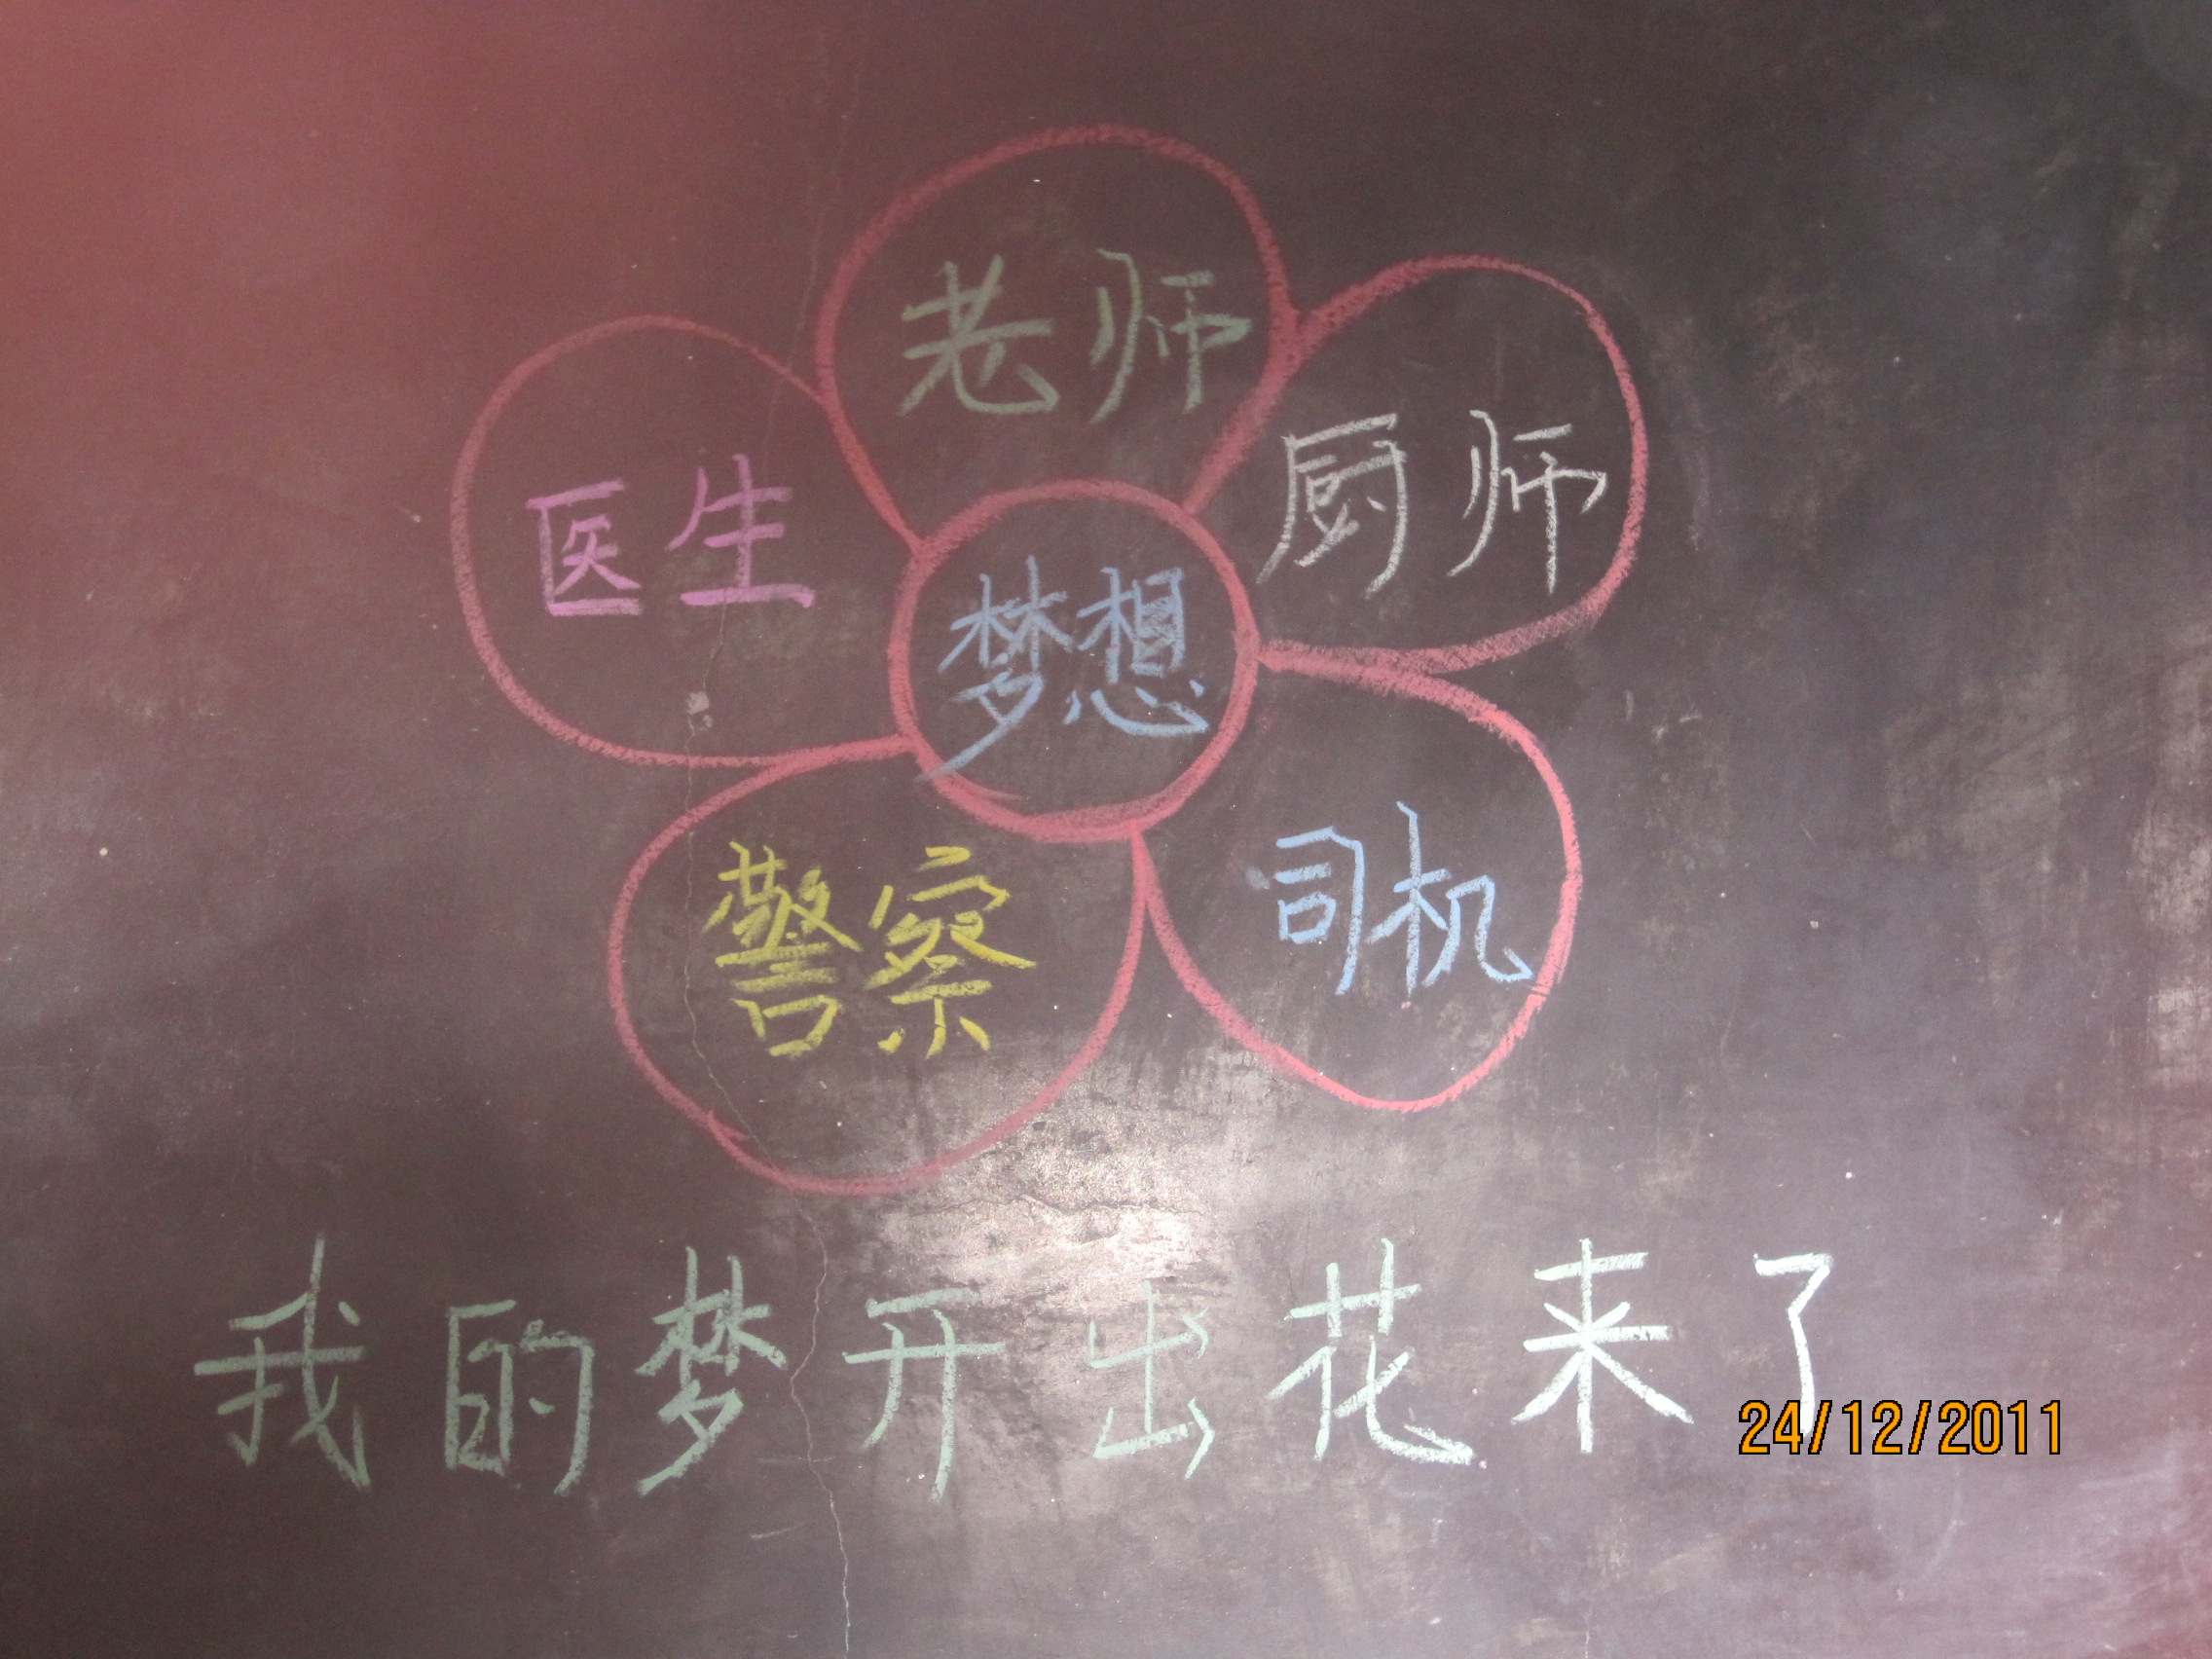 老师
厨师
医生
梦想
司机
警察
我的梦开出花来了
24/12/2011